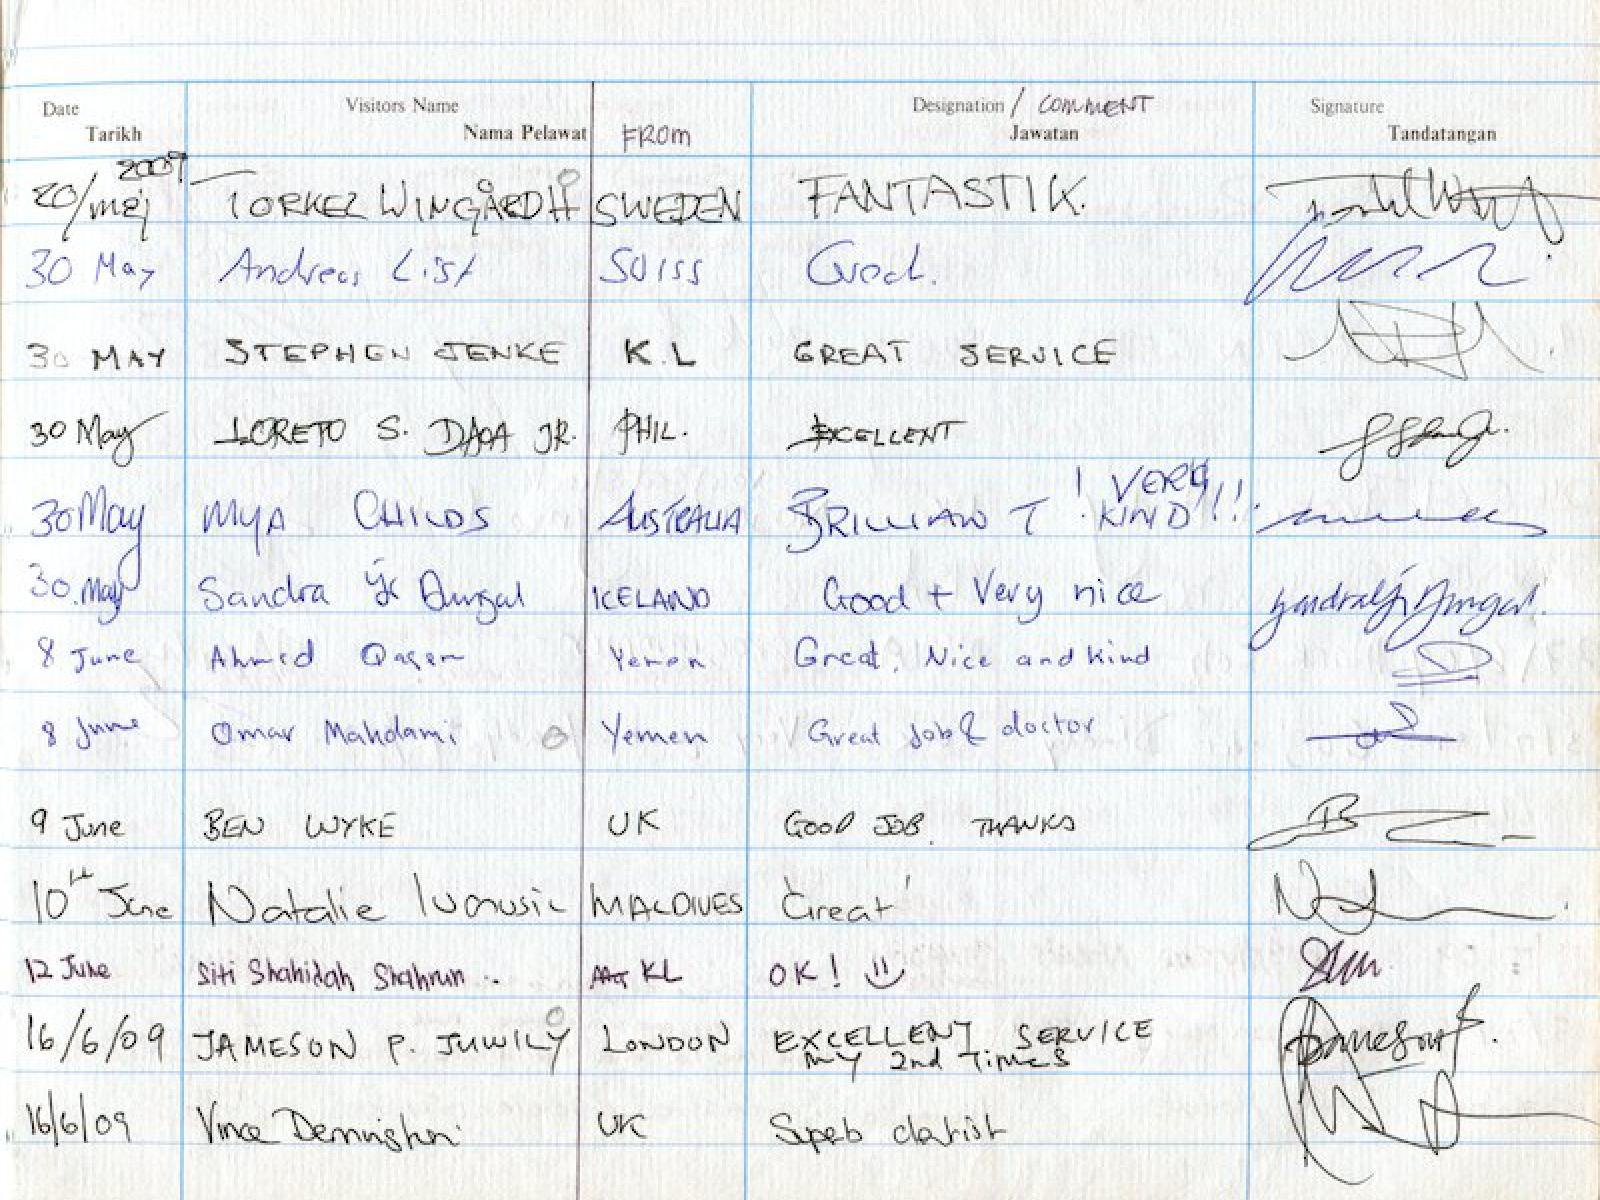 Date Visitors Name Designation / COMMENT Signature
Tarikh Nama Pelawat FROM Jawatan Tandatangan
2009
20/maj TORKEL WINGÅRDH SWEDEN FANTASTIK.
30 May Andreas List SUISS Good.
30 MAY STEPHEN JENKE K.L GREAT SERVICE
30 May LORETO S. DAOA JR. PHIL. EXCELLENT
30 May MYA CHILDS AUSTRALIA BRILLIANT! VERY KIND!!!
30. May Sandra Ýr Dungal ICELAND Good + Very nice
8 June Ahmed Qasem Yemen Great. Nice and kind
8 June Omar Mahdami Yemen Great Job & doctor
9 June BEN WYKE UK GOOD JOB. THANKS
10th June Natalie MALDIVES Great!
12 June Siti Shahidah Shahrun .. KL OK!
16/6/09 JAMESON P. JUWILY LONDON EXCELLENT SERVICE
MY 2nd Times
16/6/09 Vince UK